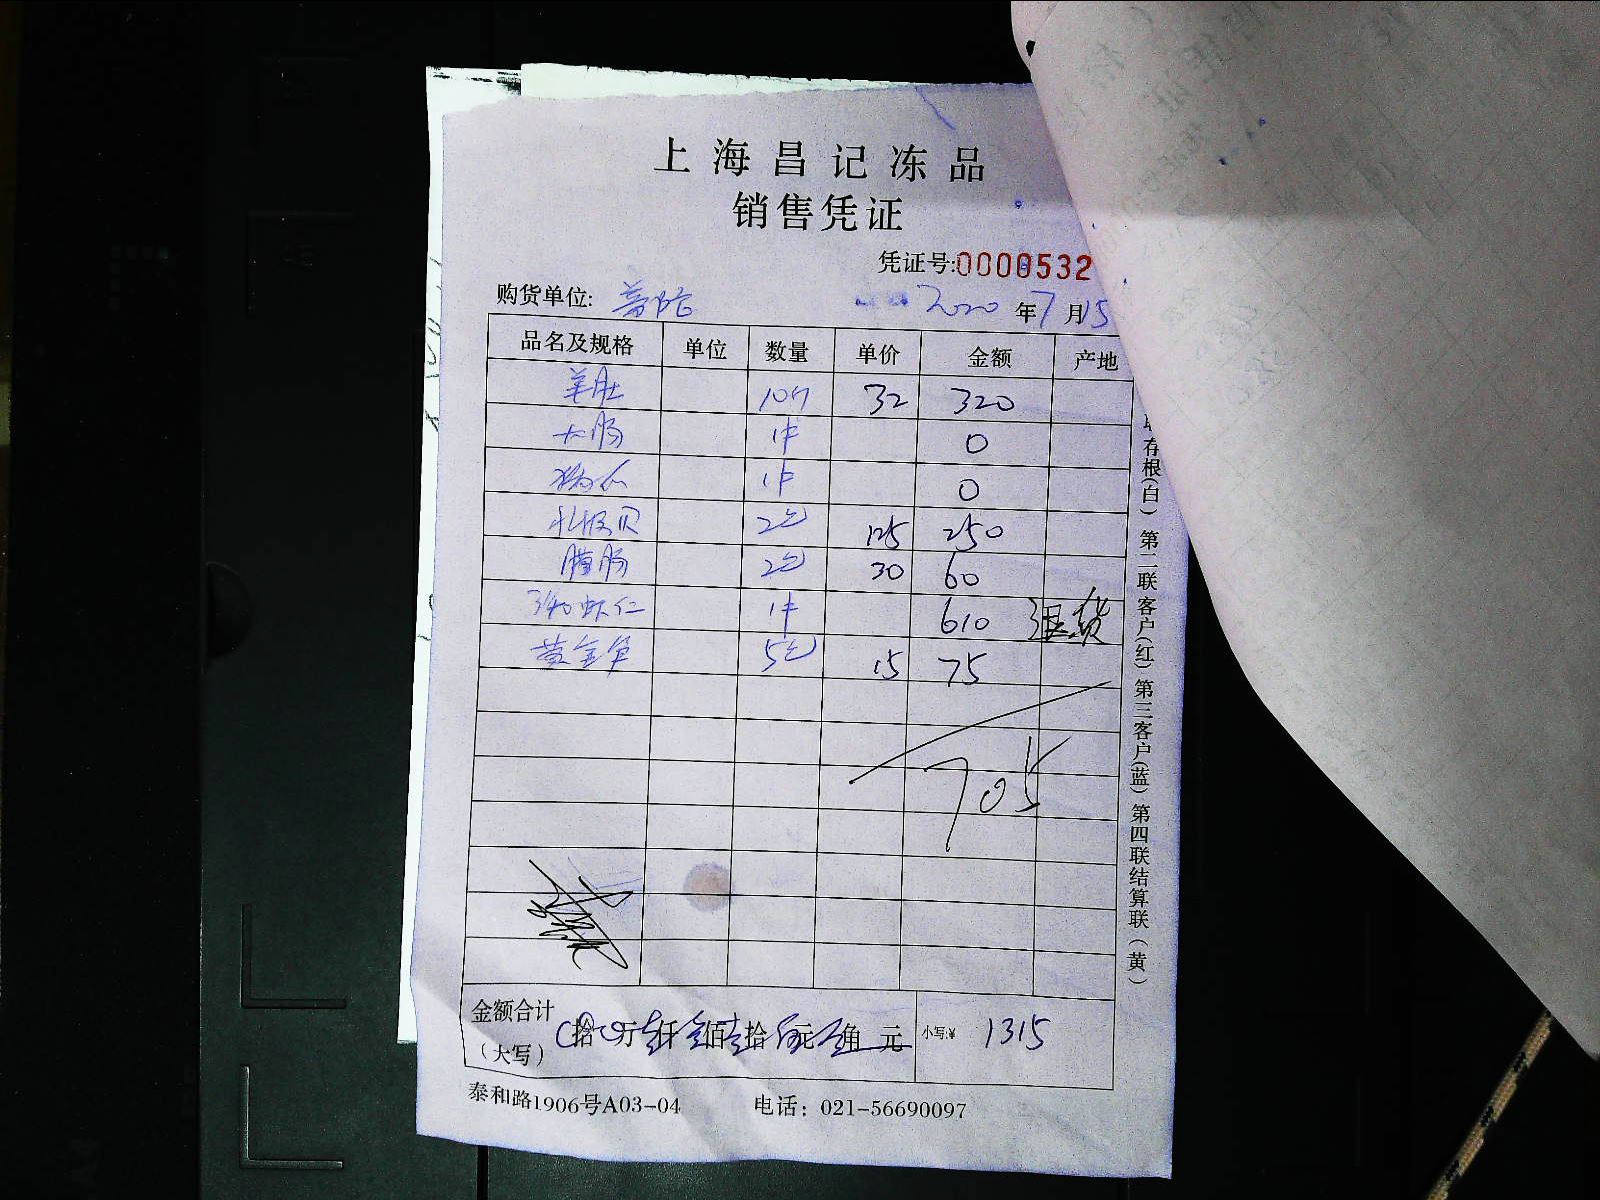 上海昌记冻品
销售凭证
凭证号:0000532
购货单位: 2020 年 7 月 15
品名及规格 单位 数量 单价 金额 产地
羊肚 10个 32 320
大肠 1件 0
1件 0
扎板贝 2包 125 250
腊肠 2包 30 60
虾仁 1件 610 退货
黄金笋 5包 15 75
705
金额合计
(大写) 拾 万 仟 佰 拾 元 角 元 小写:¥ 1315
泰和路1906号A03-04 电话: 021-56690097
存根(白) 第二联客户(红) 第三客户(蓝) 第四联结算联(黄)